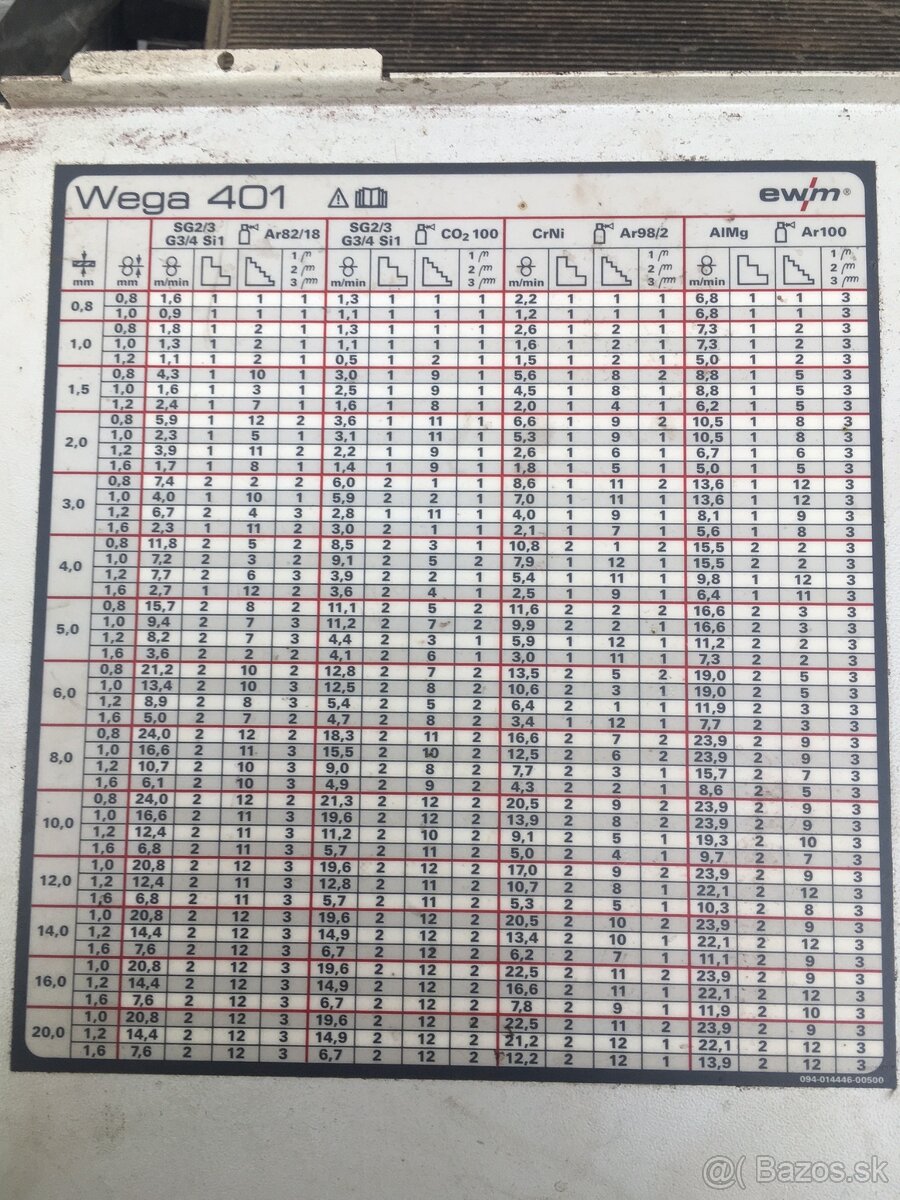 Wega 401 ewm®
SG2/3 G3/4 Si1 Ar82/18 SG2/3 G3/4 Si1 CO2 100 CrNi Ar98/2 AlMg Ar100
mm mm m/min 1 2 3 m/min 1 2 3 m/min 1 2 3 m/min 1 2 3
0,8 0,8 1,6 1 1 1 1,3 1 1 1 2,2 1 1 1 6,8 1 1 3
1,0 0,9 1 1 1 1,1 1 1 1 1,2 1 1 1 6,8 1 1 3
1,0 0,8 1,8 1 2 1 1,3 1 1 1 2,6 1 2 1 7,3 1 2 3
1,0 1,3 1 2 1 1,1 1 1 1 1,6 1 2 1 7,3 1 2 3
1,2 1,1 1 2 1 0,5 1 2 1 1,5 1 2 1 5,0 1 2 3
1,5 0,8 4,3 1 10 1 3,0 1 9 1 5,6 1 8 2 8,8 1 5 3
1,0 1,6 1 3 1 2,5 1 9 1 4,5 1 8 1 8,8 1 5 3
1,2 2,4 1 7 1 1,6 1 8 1 2,0 1 4 1 6,2 1 5 3
2,0 0,8 5,9 1 12 2 3,6 1 11 1 6,6 1 9 2 10,5 1 8 3
1,0 2,3 1 5 1 3,1 1 11 1 5,3 1 9 1 10,5 1 8 3
1,2 3,9 1 11 2 2,2 1 9 1 2,6 1 6 1 6,7 1 6 3
1,6 1,7 1 8 1 1,4 1 9 1 1,8 1 5 1 5,0 1 5 3
3,0 0,8 7,4 2 2 2 6,0 2 1 1 8,6 1 11 2 13,6 1 12 3
1,0 4,0 1 10 1 5,9 2 2 1 7,0 1 11 1 13,6 1 12 3
1,2 6,7 2 4 3 2,8 1 11 1 4,0 1 9 1 8,1 1 9 3
1,6 2,3 1 11 2 3,0 2 1 1 2,1 1 7 1 5,6 1 8 3
4,0 0,8 11,8 2 5 2 8,5 2 3 1 10,8 2 1 2 15,5 2 2 3
1,0 7,2 2 3 2 9,1 2 5 2 7,9 1 12 1 15,5 2 2 3
1,2 7,7 2 6 3 3,9 2 2 1 5,4 1 11 1 9,8 1 12 3
1,6 2,7 1 12 2 3,6 2 4 1 2,5 1 9 1 6,4 1 11 3
5,0 0,8 15,7 2 8 2 11,1 2 5 2 11,6 2 2 2 16,6 2 3 3
1,0 9,4 2 7 3 11,2 2 7 2 9,9 2 2 1 16,6 2 3 3
1,2 8,2 2 7 3 4,4 2 3 1 5,9 1 12 1 11,2 2 2 3
1,6 3,6 2 2 2 4,1 2 6 1 3,0 1 11 1 7,3 2 2 3
6,0 0,8 21,2 2 10 2 12,8 2 7 2 13,5 2 5 2 19,0 2 5 3
1,0 13,4 2 10 3 12,5 2 8 2 10,6 2 3 1 19,0 2 5 3
1,2 8,9 2 8 3 5,4 2 5 2 6,4 2 1 1 11,9 2 3 3
1,6 5,0 2 7 2 4,7 2 8 2 3,4 1 12 1 7,7 2 3 3
8,0 0,8 24,0 2 12 2 18,3 2 11 2 16,6 2 7 2 23,9 2 9 3
1,0 16,6 2 11 3 15,5 2 10 2 12,5 2 6 2 23,9 2 9 3
1,2 10,7 2 10 3 9,0 2 8 2 7,7 2 3 1 15,7 2 7 3
1,6 6,1 2 10 3 4,9 2 9 2 4,3 2 2 1 8,6 2 5 3
10,0 0,8 24,0 2 12 2 21,3 2 12 2 20,5 2 9 2 23,9 2 9 3
1,0 16,6 2 11 3 19,6 2 12 2 13,9 2 8 2 23,9 2 9 3
1,2 12,4 2 11 3 11,2 2 10 2 9,1 2 5 1 19,3 2 10 3
1,6 6,8 2 11 3 5,7 2 11 2 5,0 2 4 1 9,7 2 7 3
12,0 1,0 20,8 2 12 3 19,6 2 12 2 17,0 2 9 2 23,9 2 9 3
1,2 12,4 2 11 3 12,8 2 11 2 10,7 2 8 1 22,1 2 12 3
1,6 6,8 2 11 3 5,7 2 11 2 5,3 2 5 1 10,3 2 8 3
14,0 1,0 20,8 2 12 3 19,6 2 12 2 20,5 2 10 2 23,9 2 9 3
1,2 14,4 2 12 3 14,9 2 12 2 13,4 2 10 1 22,1 2 12 3
1,6 7,6 2 12 3 6,7 2 12 2 6,2 2 7 1 11,1 2 9 3
16,0 1,0 20,8 2 12 3 19,6 2 12 2 22,5 2 11 2 23,9 2 9 3
1,2 14,4 2 12 3 14,9 2 12 2 16,6 2 11 1 22,1 2 12 3
1,6 7,6 2 12 3 6,7 2 12 2 7,8 2 9 1 11,9 2 10 3
20,0 1,0 20,8 2 12 3 19,6 2 12 2 22,5 2 11 2 23,9 2 9 3
1,2 14,4 2 12 3 14,9 2 12 2 21,2 2 12 1 22,1 2 12 3
1,6 7,6 2 12 3 6,7 2 12 2 12,2 2 12 1 13,9 2 12 3
094-014446-00500
@( Bazos.sk